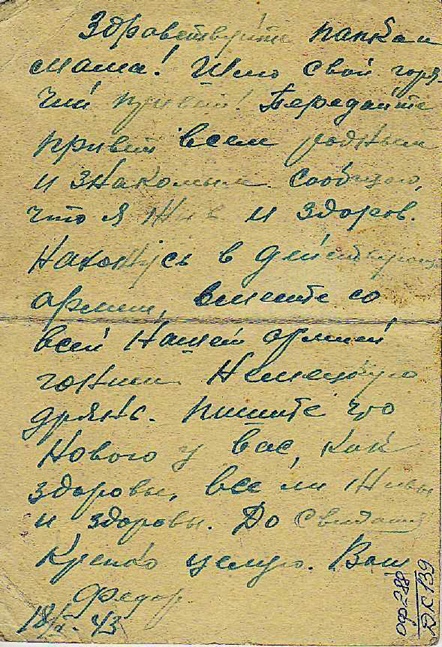 Здравствуйте папка и
мама! Шлю свой горя-
чий привет! Передайте
привет всем родным
и знакомым. Сообщаю,
что я жив и здоров.
Нахожусь в действующ
армии, вместе со
всей нашей армией
гоним Немецкую
дрянь. Пишите что
нового у вас, как
здоровье, все ли живы
и здоровы. До свидан
Крепко целую. Ваш
Федор
43
ДК 139